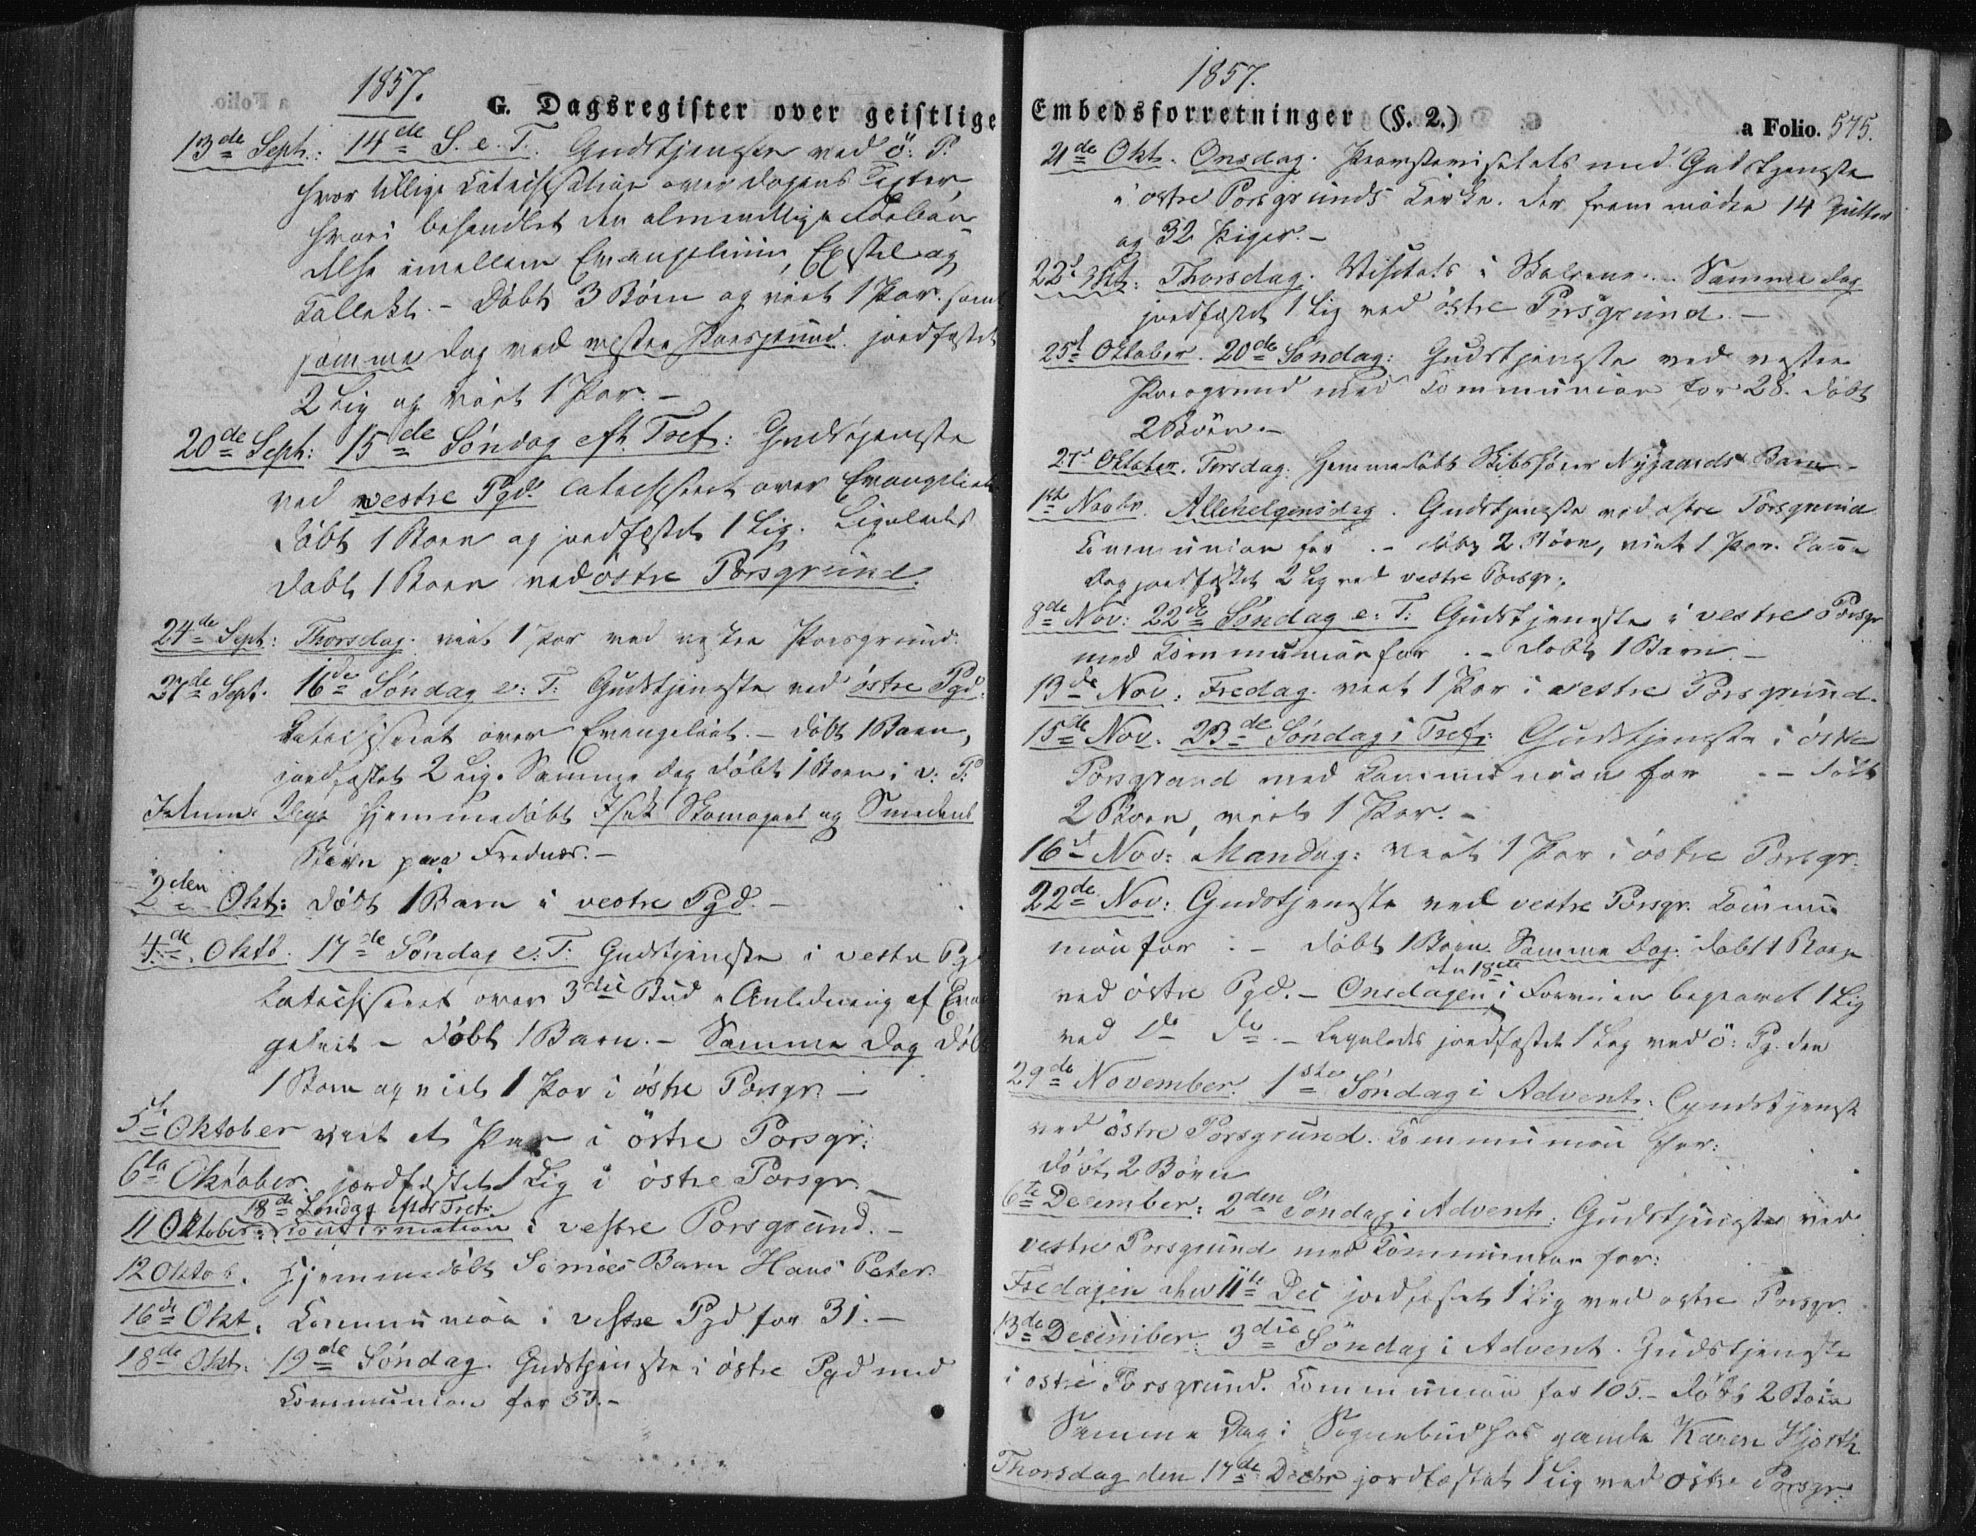 1857.
G. Dagsregister over geistlige
13de Sept: 14de S. e. T. Gudstjeneste ved ö. P.
hvor tillige Catechisation over Dagens Texter,
hvori behandlet den almindelige Forbin-
delse imellem Evangelium, Epistel og
Collekt. - Døbt 3 Børn og viet 1 Par. samt
samme Dag ved vestre Porsgrund jordfæstet
2 Lig og viet 1 Par. -
20de Sept: 15de Søndag eft. Tref: Gudstjeneste
ved vestre Pgd. Catechiseret over Evangeliet
døbt 1 Barn og jordfæstet 1 Lig. Ligeledes
døbt 1 Barn ved østre Porsgrund.
24de Sept: Thorsdag. viet 1 Par ved vestre Porsgrund.
27de Sept. 16de Søndag e: T: Gudstjeneste ved østre Pgd.
Catechiseret over Evangeliet. - døbt 1 Barn,
jordfæstet 2 Lig. Samme Dag døbt 1 Barn i v: P:
Uge hjemmedøbt Isak Skomagers og Smedens
Børn paa Frednes. -
2den Okt: døbt 1 Barn i vestre Pgd. -
4de Oktb. 17de Søndag e: T: Gudstjeneste i vestre Pgd
Catechiseret over 3die Bud i Anledning af Evan
geliet - døbt 1 Barn. - Samme Dag døbt
1 Barn og viet 1 Par i østre Porsgr. -
5te Oktober viet et Par i östre Porsgr:
6te Oktober jordfæstet 1 Lig i østre Porsgr. -
18de Søndag efter Tref:
11 Oktober: Confirmation i vestre Porsgrund. -
12 Oktob. Hjemmedøbt Barn Hans Peter.
16de Okt. Communion i vestre Pgd for 31. -
18de Okt. 19de Søndag. Gudstjeneste i østre Pgd med
Communion for 53. -
1857.
Embedsforretninger (§. 2.)
a Folio. 575.
21de Okt. Onsdag. Provstevisitats med Gudstjeneste
i østre Porsgrunds Kirke. Der fremmødte 14 Gutter
og 32 Piger. -
22d Okt: Thorsdag. Visitats i Skolerne. Samme Dag
jordfæstet 1 Lig ved østre Porsgrund. -
25d Oktober. 20de Søndag: Gudstjeneste ved vestre
Porsgrund med Communion for 28. døbt
2 Börn. -
27d Oktober. Tirsdag. hjemmedøbt Nygaards Barn -
1ste Novbr. Allehelgensdag. Gudstjeneste ved østre Porsgrund
Communion for . - døbt 2 Børn, viet 1 Par. Samme
Dag jordfæstet 2 Lig ved vestre Porsgr:
8de Nov: 22de Søndag e: T: Gudstjeneste i vestre Porsgr
med Communion for . - døbt 1 Barn. -
13de Nov: Fredag. viet 1 Par i vestre Porsgrund.
15de Nov. 23de Søndag i Tref: Gudstjeneste i østre
Porsgrund med Communion for . - døbt
2 Børn, viet 1 Par. -
16d Nov: Mandag: viet 1 Par i østre Porsgr.
22de Nov: Gudstjeneste ved vestre Porsgr. Commu
nion for : - døbt 1 Barn. Samme Dag: døbt 1 Barn
den 18de
ved østre Pgd. - Onsdagen i Forveien begravet 1 Lig
ved do do. - Ligeledes jordfæstet 1 Lig ved ö: Pg. den
29de November. 1ste Søndag i Advent: Gudstjeneste
ved østre Porsgrund. Communion for:
døbt 2 Børn
6te December: 2den Søndag i Advent: Gudstjeneste ved
vestre Porsgrund med Communion for:
Fredagen den 11te Dec jordfæstet 1 Lig ved østre Porsgr.
13de December: 3die Søndag i Advent. Gudstjeneste
i østre Porsgrund. Communion for 105 - døbt 2 Børn
Samme Dag i Sognebud hos gamle Karen Hjorth
Thorsdag den 17de Decbr jordfæstet 1 Lig ved østre Porsgr: